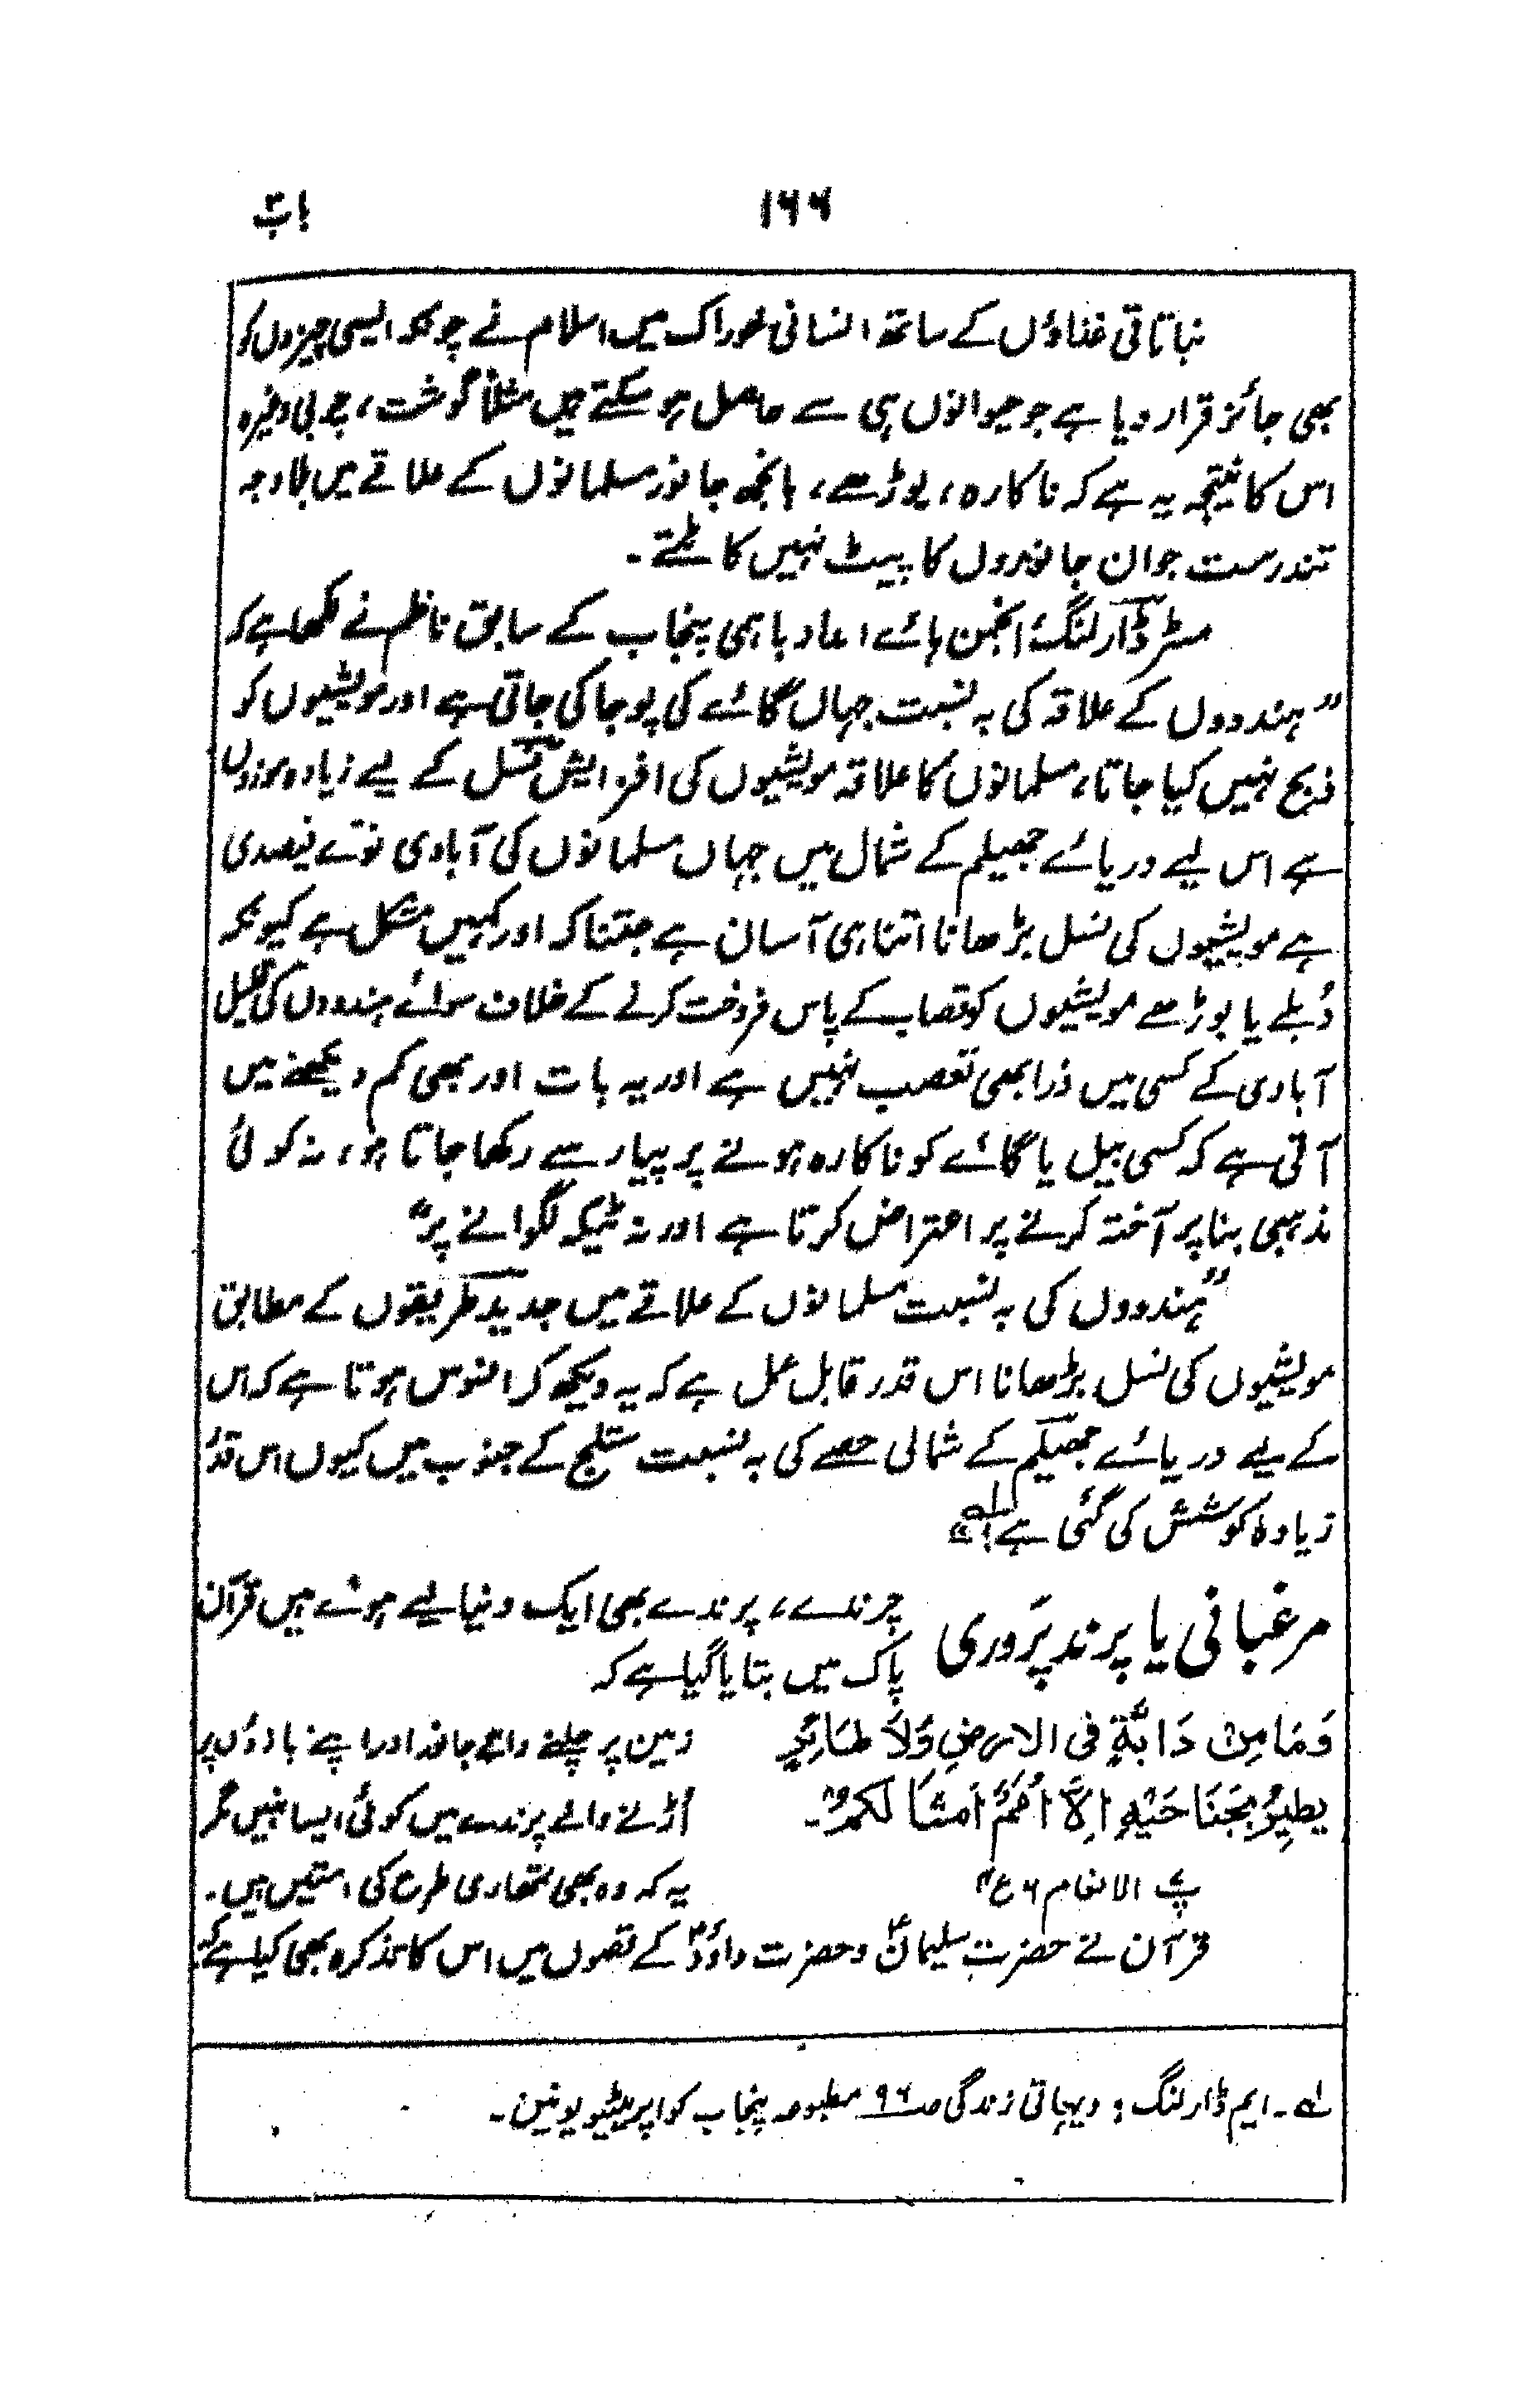 ۱۶۶
باب ۳
نباتاتی غذاؤں کے ساتھ انسانی خوراک میں اسلام نے چونکہ ایسی چیزوں کو
بھی جائز قرار دیا ہے جو حیوانوں ہی سے حاصل ہو سکتے ہیں مثلاً گوشت، چربی وغیرہ
اس کا نتیجہ یہ ہے کہ ناکارہ، بوڑھے، بانجھ جانور مسلمانوں کے علاقے میں بلاوجہ
تندرست جوان جانوروں کا پیٹ نہیں کاٹتے۔
مسٹر ڈارلنگ انجمن ہائے امداد باہمی پنجاب کے سابق ناظم نے لکھا ہے کہ
”ہندووں کے علاقہ کی بہ نسبت جہاں گائے کی پوجا کی جاتی ہے اور مویشیوں کو
ذبح نہیں کیا جاتا، مسلمانوں کا علاقہ مویشیوں کی افزایش نسل کے لیے زیادہ موزوں
ہے اس لیے دریائے جھیلم کے شمال میں جہاں مسلمانوں کی آبادی نوّے فیصدی
ہے مویشیوں کی نسل بڑھانا اتنا ہی آسان ہے جتنا کہ اور کہیں مشکل ہے کیونکہ
دُبلے یا بوڑھے مویشیوں کو قصاب کے پاس فروخت کرنے کے خلاف سوائے ہندووں کی قلیل
آبادی کے کسی میں ذرا بھی تعصب نہیں ہے اور یہ بات اور بھی کم دیکھنے میں
آتی ہے کہ کسی بیل یا گائے کو ناکارہ ہونے پر پیار سے رکھا جاتا ہو، نہ کوئی
مذہبی بنا پر آختہ کرنے پر اعتراض کرتا ہے اور نہ ٹیکہ لگوانے پر“
”ہندووں کی بہ نسبت مسلمانوں کے علاقے میں جدید طریقوں کے مطابق
مویشیوں کی نسل بڑھانا اس قدر قابل عمل ہے کہ یہ دیکھ کر افسوس ہوتا ہے کہ اس
کے لیے دریائے جھیلم کے شمالی حصے کی بہ نسبت ستلج کے جنوب میں کیوں اس قدر
زیادہ کوشش کی گئی ہے“ ۱ے
مرغبانی یا پرند پَروری
چرندے، پرندے بھی ایک دنیا لیے ہوئے ہیں قرآن
پاک میں بتایا گیا ہے کہ
وَمَا مِنْ دَابَّةٍ فی الارضِ وَلَا طَائِرٍ
یطِیرُ بِجَنَاحَیْهِ اِلَّا اُمَمٌ اَمثَالُکُمْ۔
پ۷ الانعام ۶ ع ۴
زمین پر چلنے والے جاندار اور اپنے بازؤں پر
اُڑنے والے پرندے میں کوئی ایسا نہیں مگر
یہ کہ وہ بھی تمھاری طرح کی امتیں ہیں۔
قرآن نے حضرت سلیمانؑ و حضرت داوٗدؑ کے قصوں میں اس کا تذکرہ بھی کیا ہے کہ
۱ے۔ ایم ڈارلنگ؛ دیہاتی زندگی ص۹۶ مطبوعہ پنجاب کواپریٹیو یونین۔